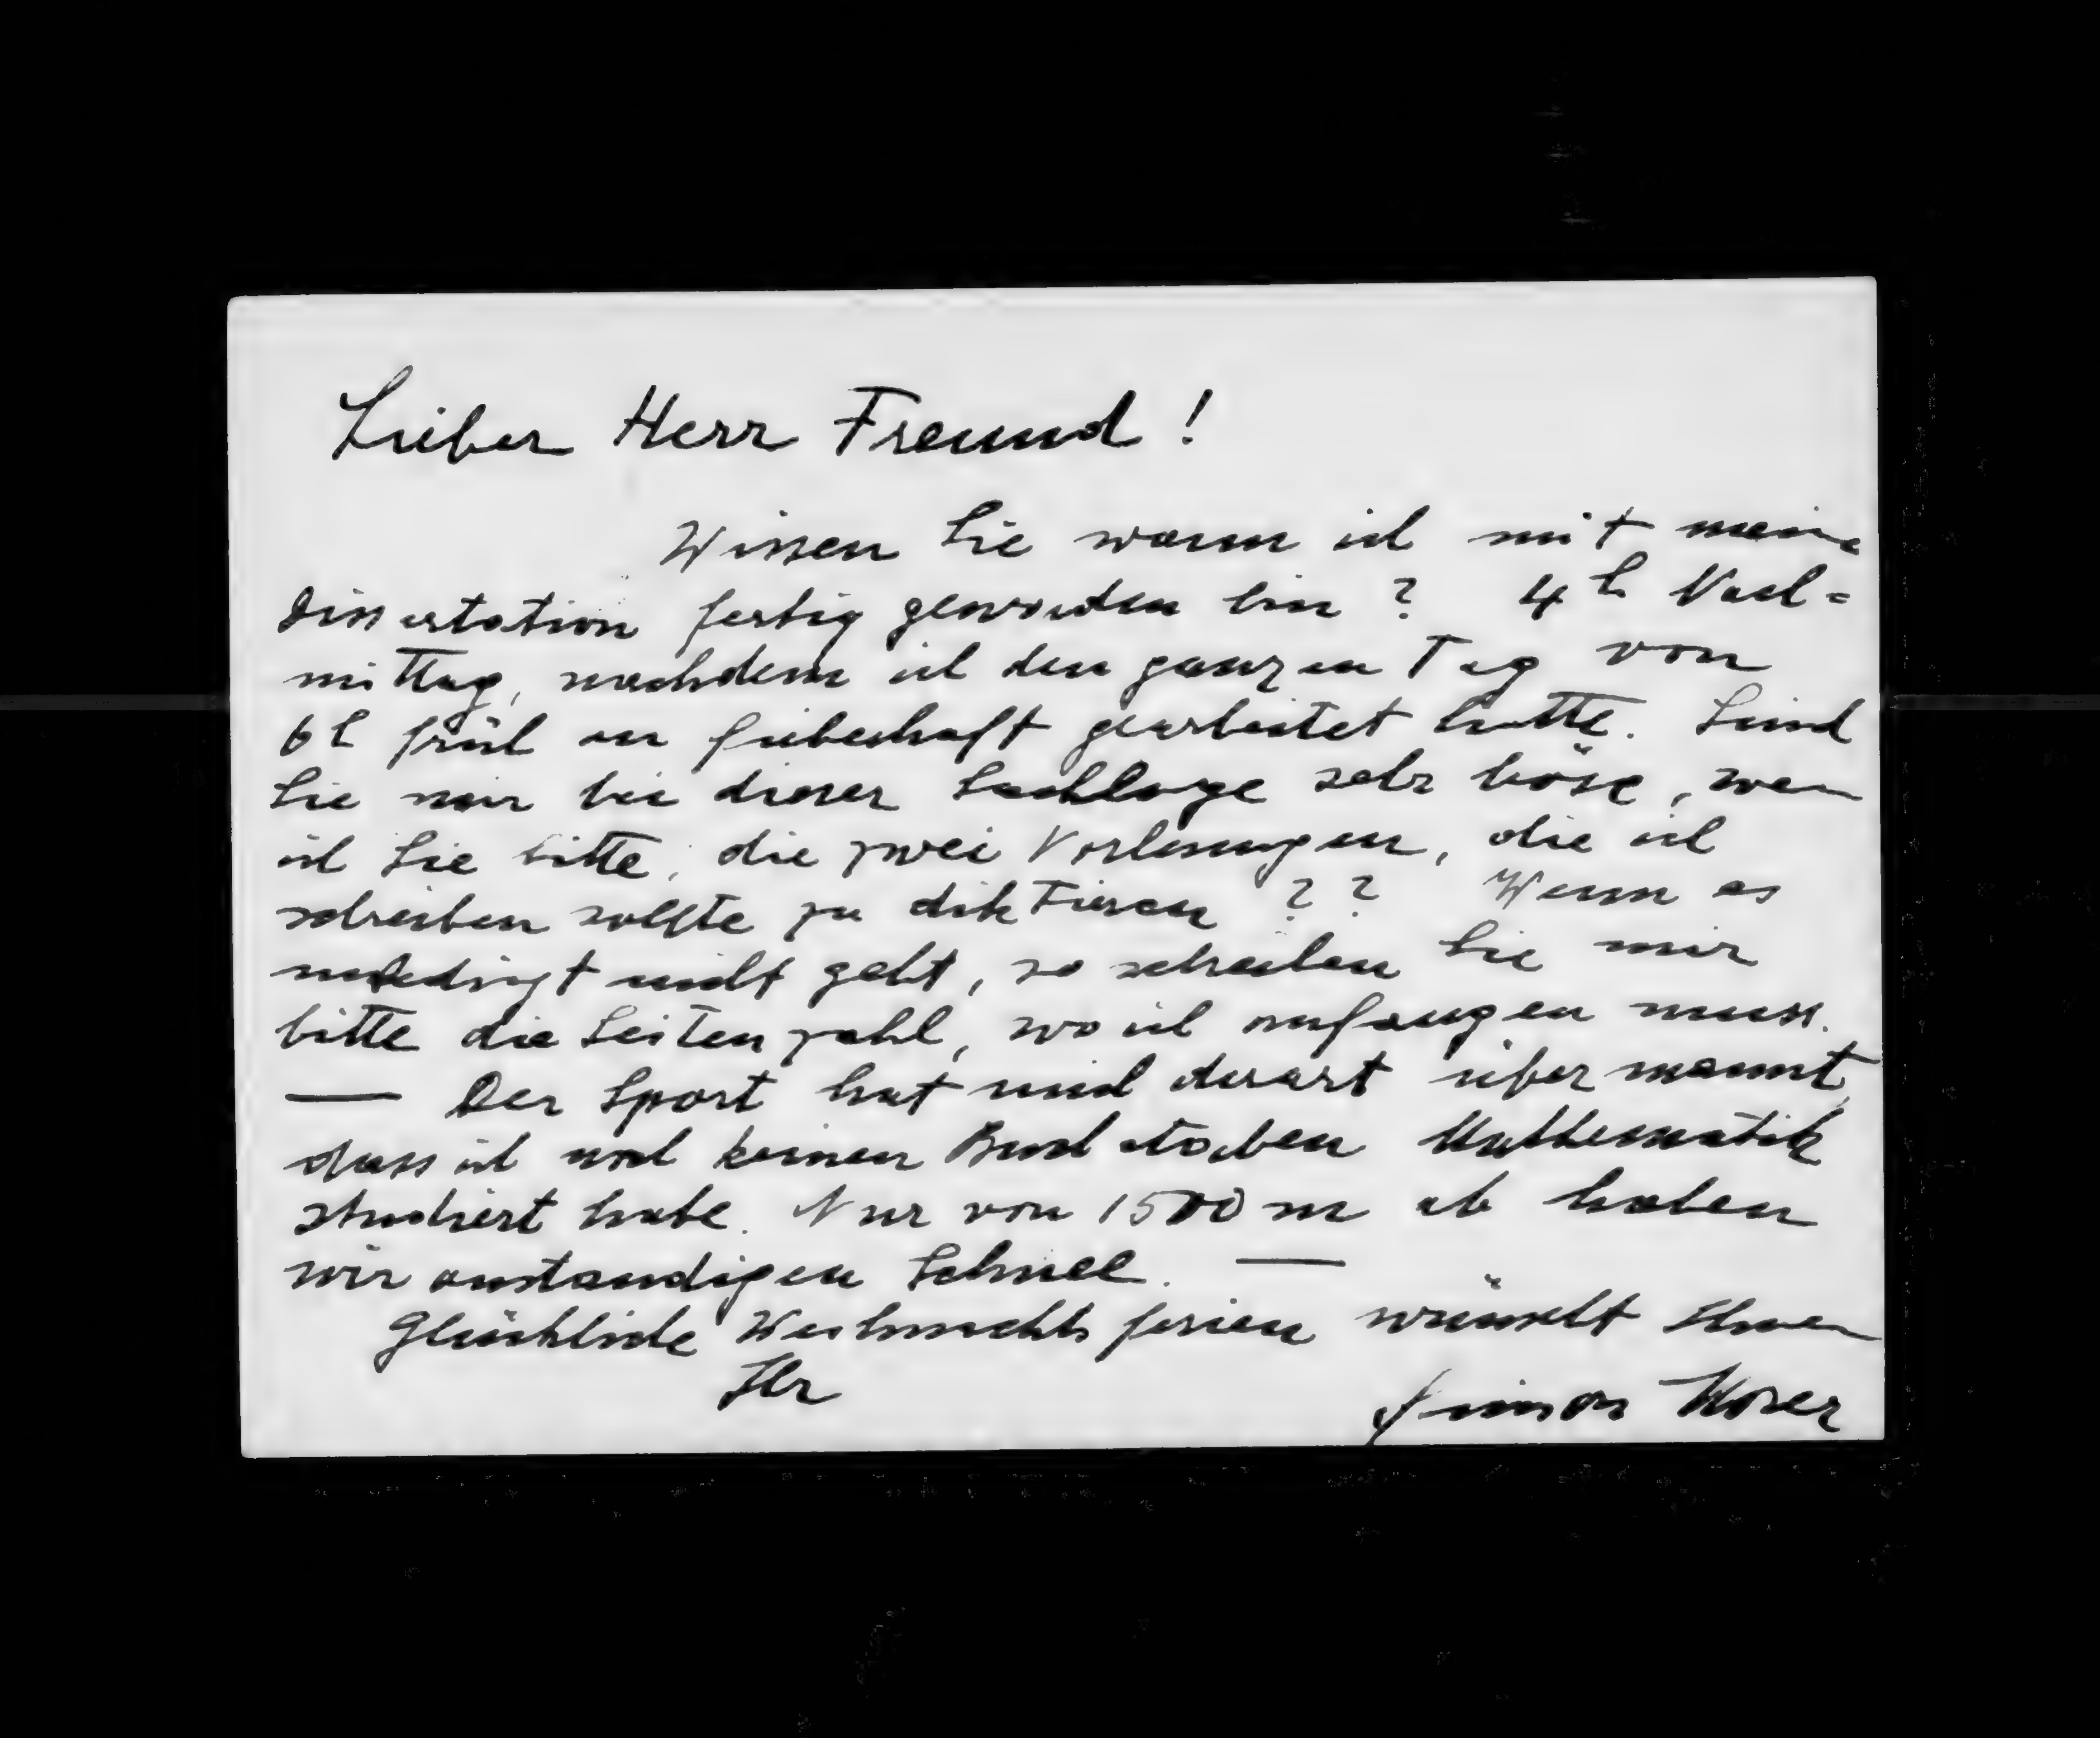 Lieber Herr Freund!
Wissen Sie wann ich mit meine
Dissertation fertig geworden bin? 4h Nach=
mittag, nachdem ich den ganzen Tag von
6h früh an fieberhaft gearbeitet hatte. Sind
Sie mir bei dieser Sachlage sehr böse, wenn
ich Sie bitte, die zwei Vorlesungen, die ich
schreiben sollte zu diktieren?? Wenn es
unbedingt nicht geht, so schreiben Sie mir
bitte die Seitenzahl, wo ich anfangen muss.
— Der Sport hat mich derart übermannt,
dass ich noch keinen Buchstaben Mathematik
studiert habe. Nur von 1500 m ab haben
wir anständigen Schnee. —
Glückliche Weihnachtsferien wünscht Ihnen
Ihr
Simon Moser